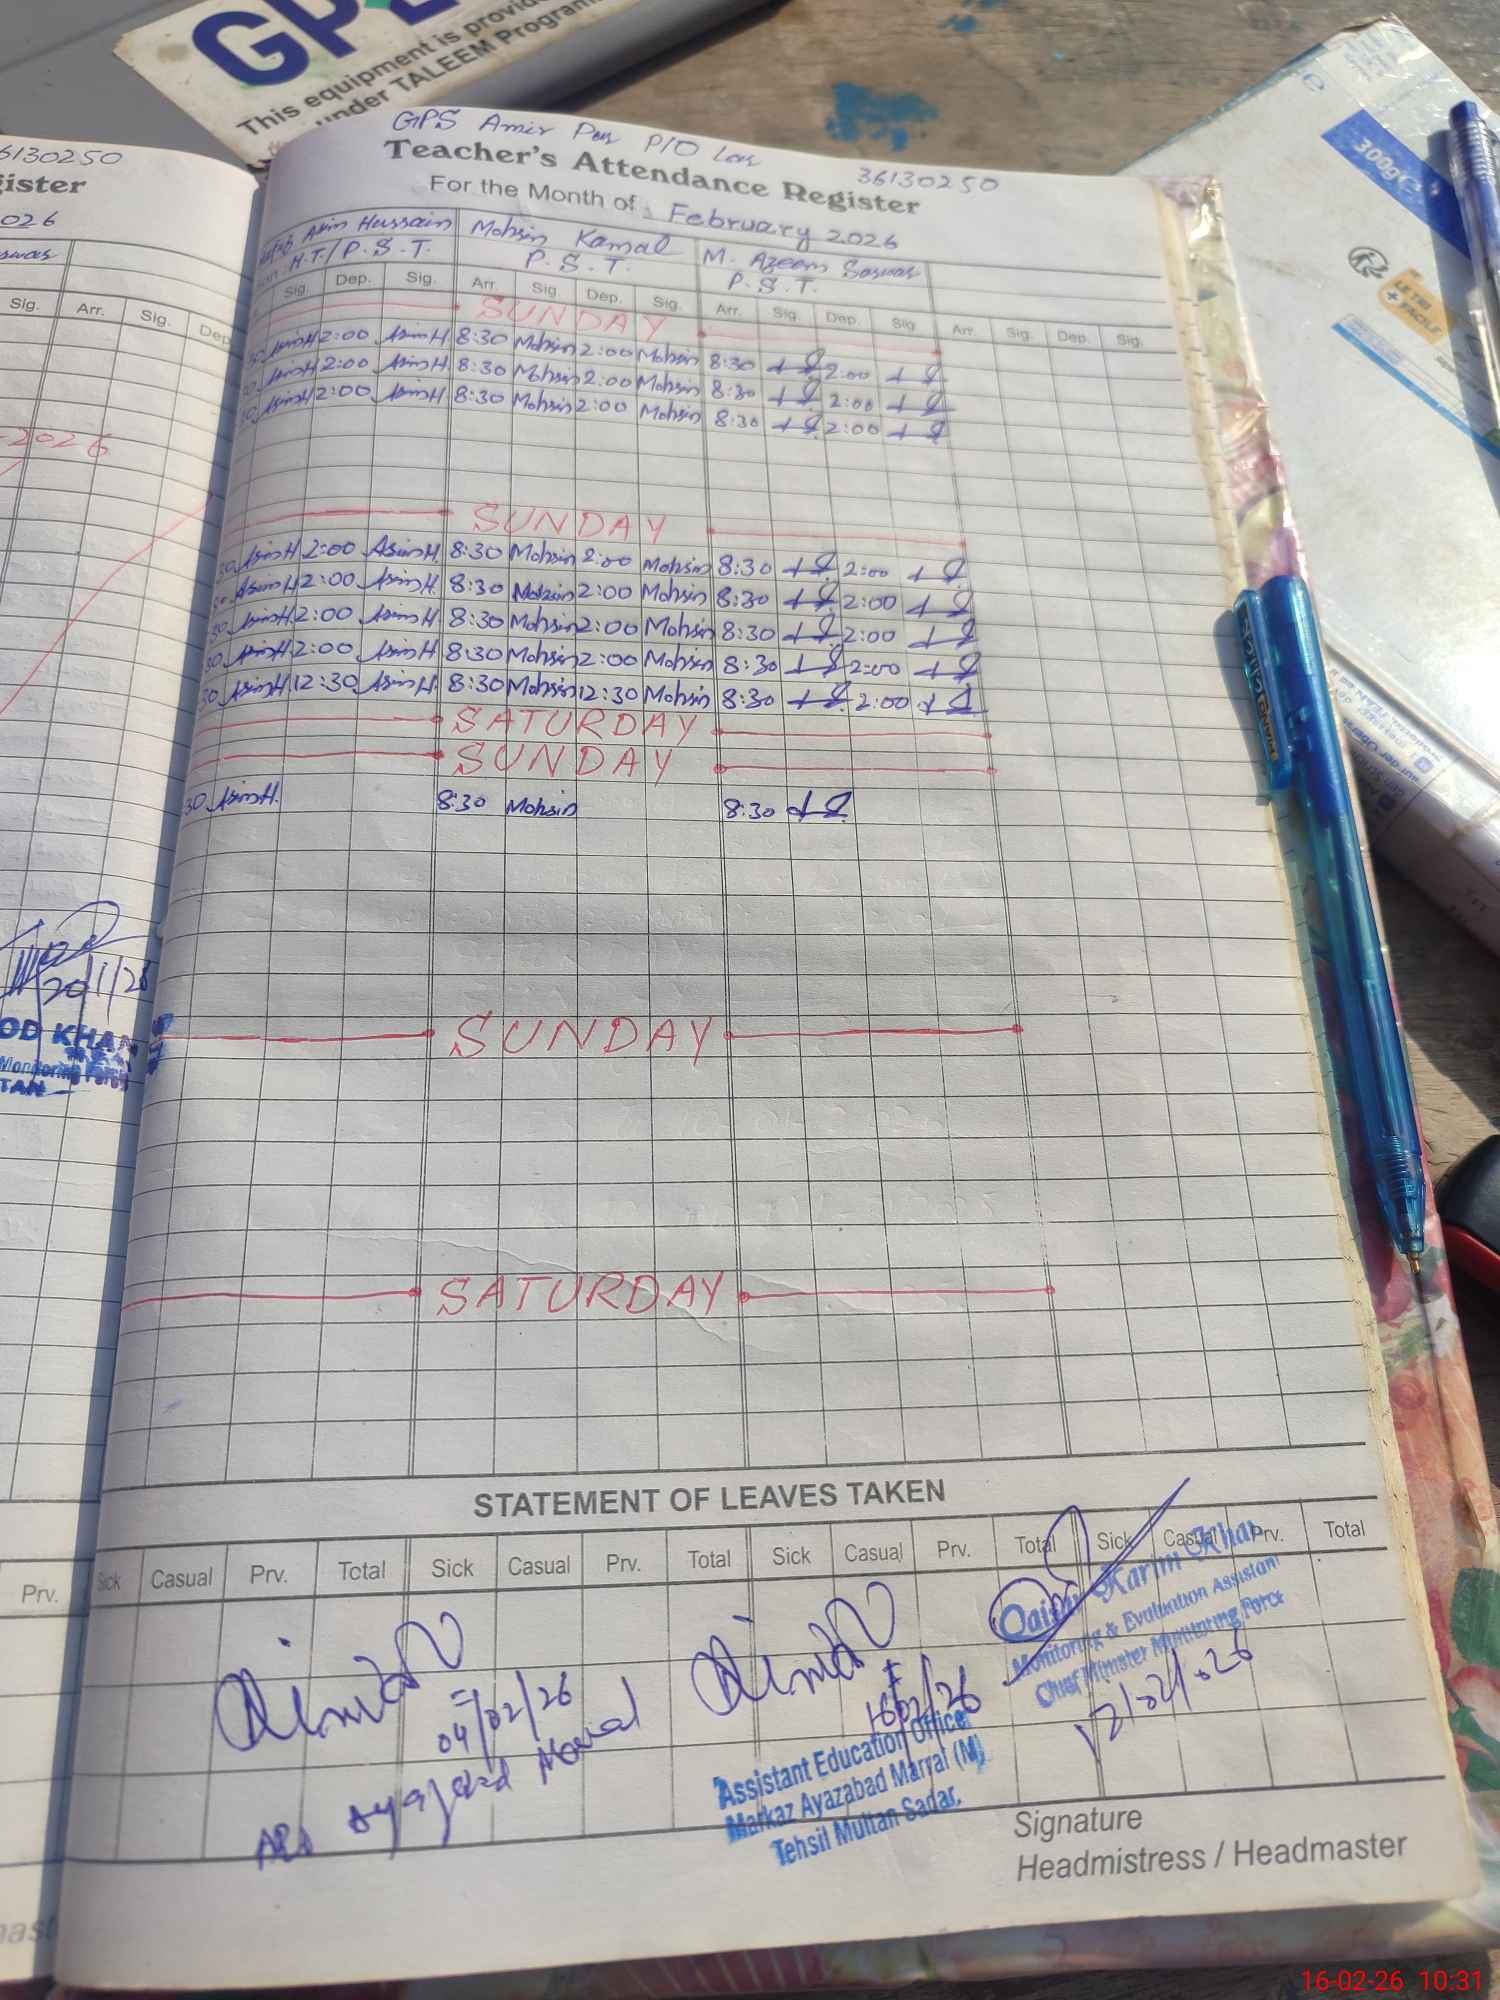 GP
This equipment is provid
under TALEEM Program
36130250
gister
026
Sig. Arr. Sig. Dep
-2026
20/1/26
OD KHAN
Monitoring Force
TAN
Prv.
GPS Amir Pur P/O
36130250
Teacher's Attendance Register
For the Month of: February 2026
Asim Hussain Mohsin Kamal M. Azeem
H.T./P.S.T. P.S.T. P.S.T.
Sig. Dep. Sig. Arr. Sig. Dep. Sig. Arr. Sig. Dep. Sig. Arr. Sig. Dep. Sig.
SUNDAY
30 AsimH 2:00 AsimH 8:30 Mohsin 2:00 Mohsin 8:30 2:00
30 AsimH 2:00 AsimH 8:30 Mohsin 2:00 Mohsin 8:30 2:00
30 AsimH 2:00 AsimH 8:30 Mohsin 2:00 Mohsin 8:30 2:00
SUNDAY
30 AsimH 2:00 AsimH. 8:30 Mohsin 2:00 Mohsin 8:30 2:00
30 AsimH 2:00 AsimH. 8:30 Mohsin 2:00 Mohsin 8:30 2:00
30 AsimH 2:00 AsimH 8:30 Mohsin 2:00 Mohsin 8:30 2:00
30 AsimH 2:00 AsimH 8:30 Mohsin 2:00 Mohsin 8:30 2:00
30 AsimH 12:30 AsimH. 8:30 Mohsin 12:30 Mohsin 8:30 2:00
SATURDAY
SUNDAY
30 AsimH. 8:30 Mohsin 8:30
SUNDAY
SATURDAY
STATEMENT OF LEAVES TAKEN
Sick Casual Prv. Total Sick Casual Prv. Total Sick Casual Prv. Total Sick Casual Prv. Total
04/02/26
Ayazabad Marral
16/02/26
Assistant Education Officer
Markaz Ayazabad Marral (M)
Tehsil Multan Sadar.
Karim Khan
Monitoring & Evaluation Assistant
Chief Minister Monitoring Force
12/02/026
Signature
Headmistress / Headmaster
300g e
LETRI
+ FACILE
PIANO
16-02-26 10:31